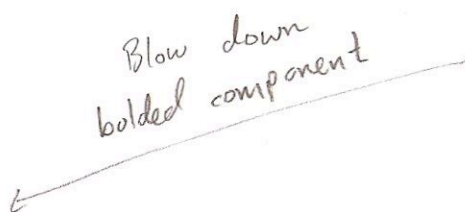 Blow down
bolded component